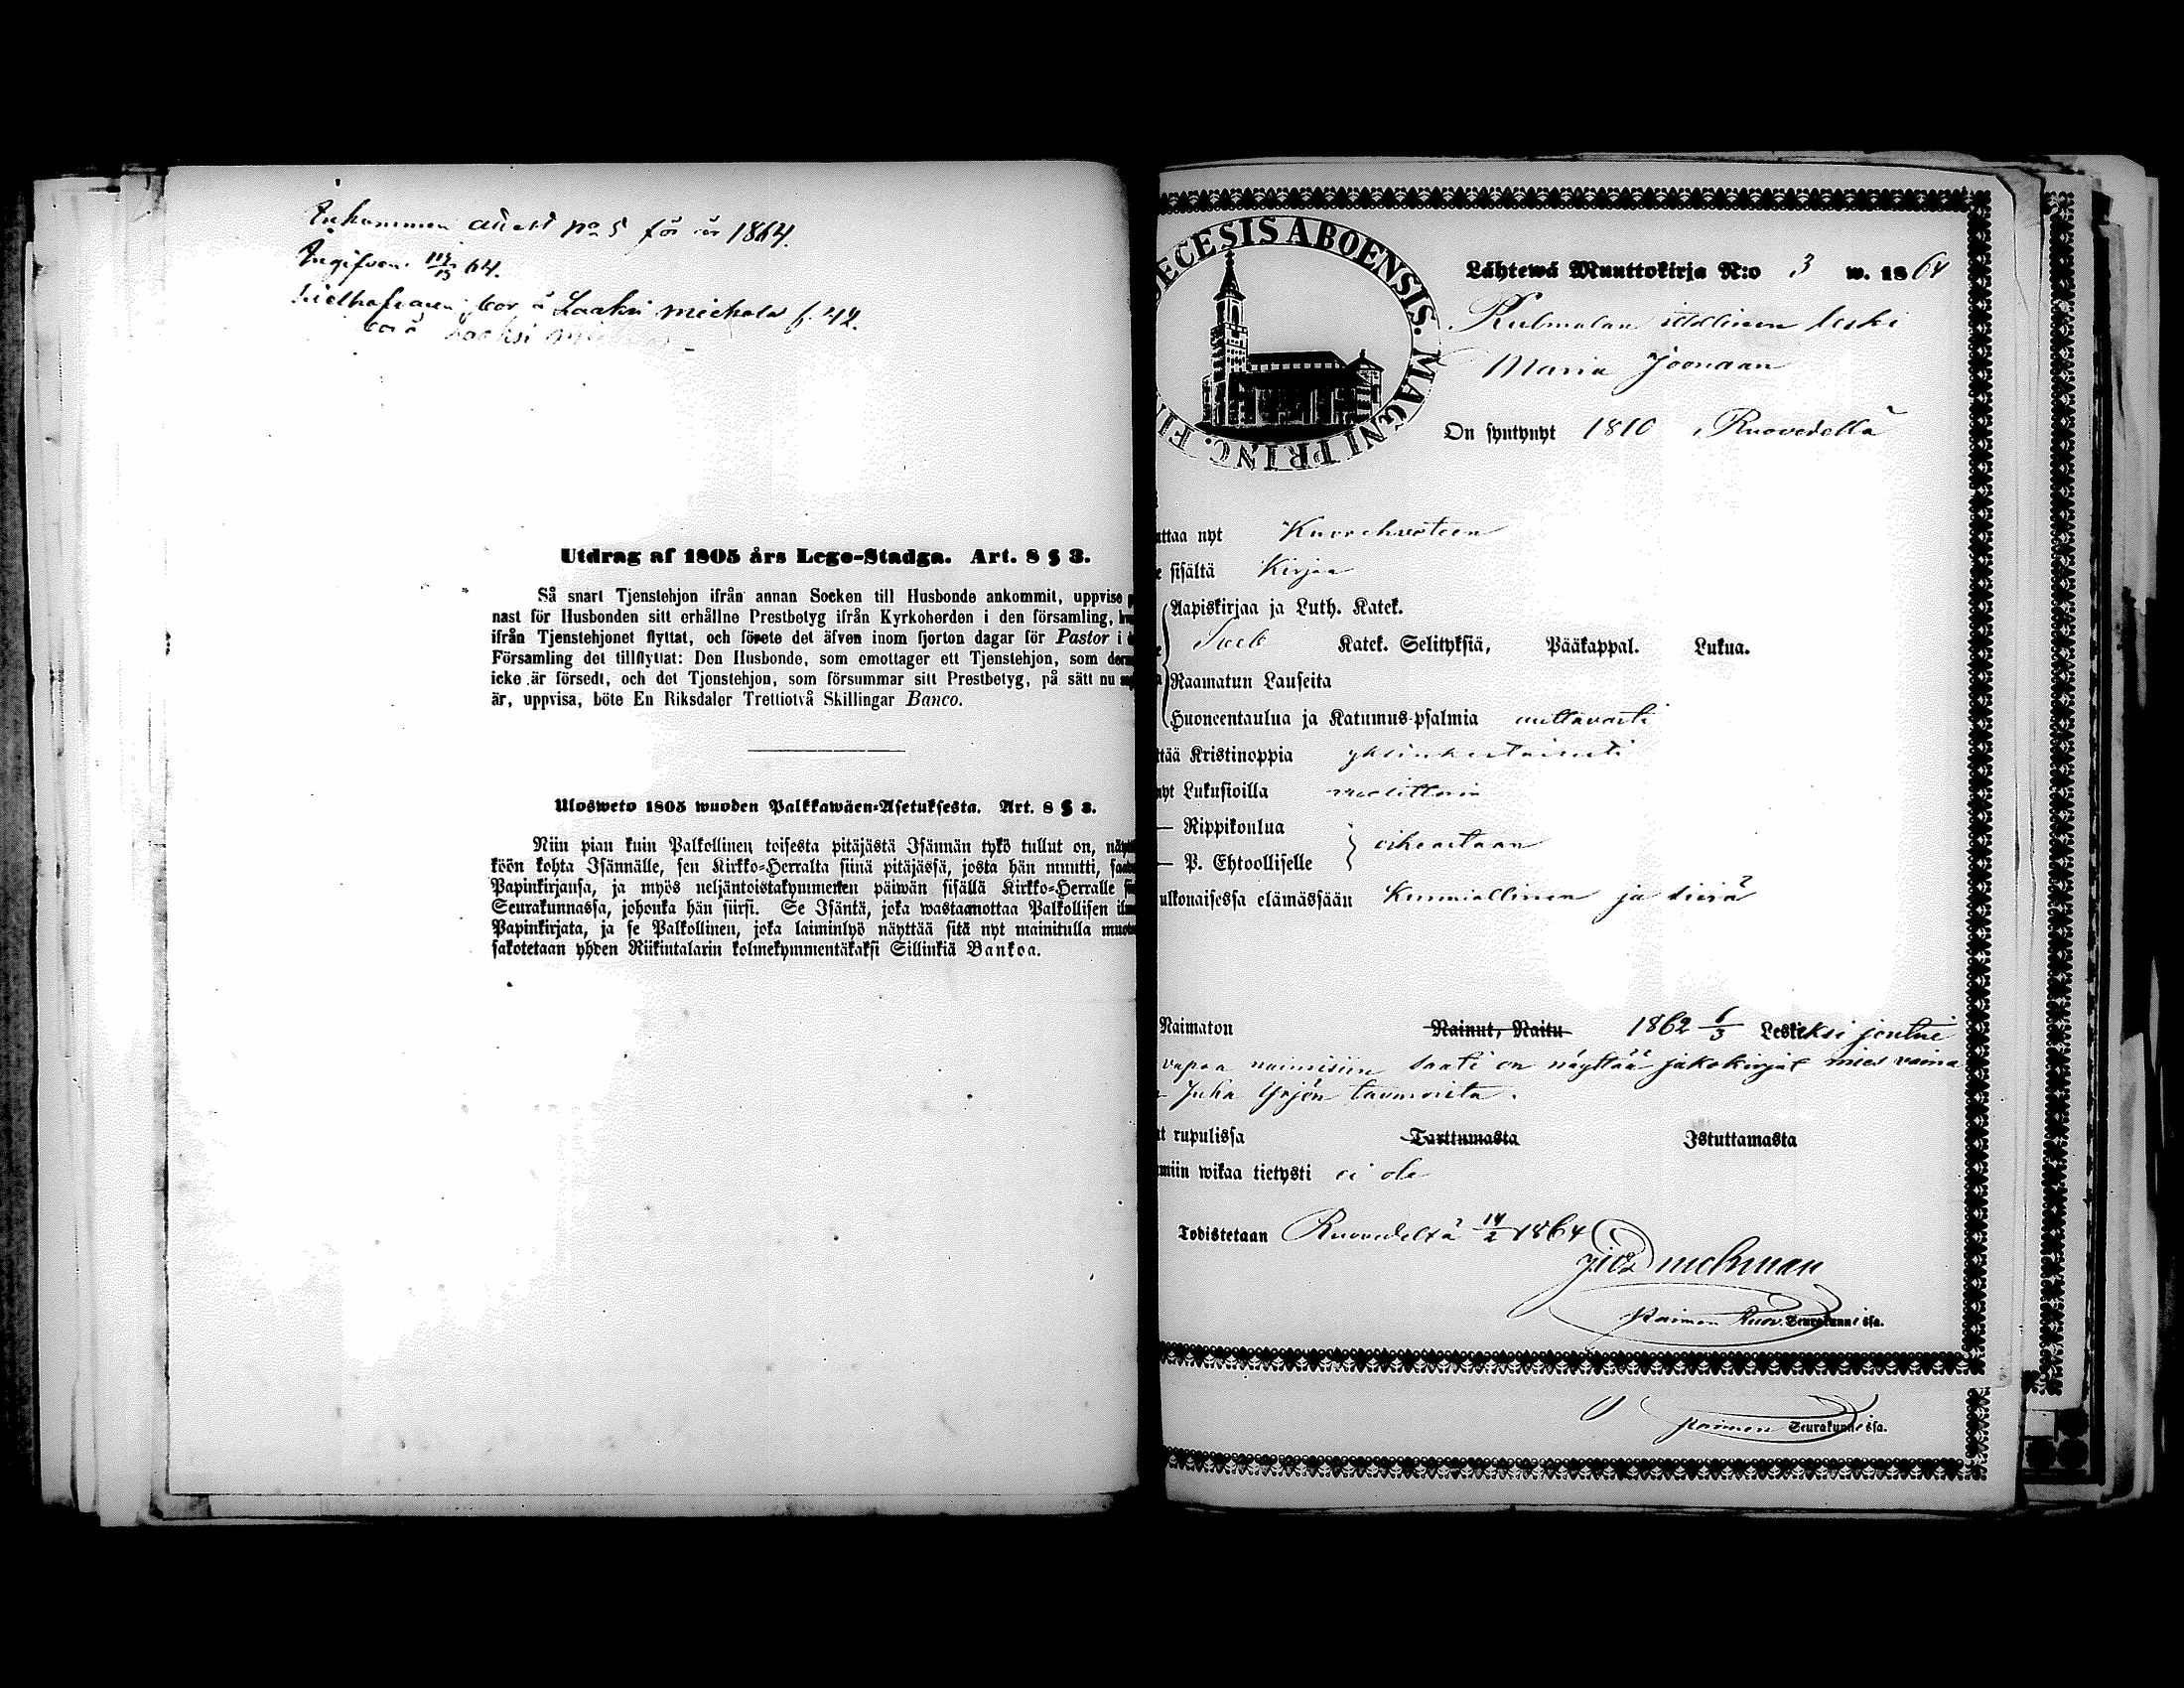 Inkommen attest No 5 för år 1864.
Ingifven 64.
bor å Laaksi Miekola f. 42.
bor å Laaksi
Utdrag af 1805 års Lego-Stadga. Art. 8 § 3.
Så snart Tjenstehjon ifrån annan Socken till Husbonde ankommit, uppvise
nast för Husbonden sitt erhållne Prestbetyg ifrån Kyrkoherden i den församling,
ifrån Tjenstehjonet flyttat, och förete det äfven inom fjorton dagar för Pastor i
Församling det tillflyttat: Den Husbonde, som emottager ett Tjenstehjon, som
icke är försedt, och det Tjenstehjon, som försummar sitt Prestbetyg, på sätt nu
är, uppvisa, böte En Riksdaler Trettiotvå Skillingar Banco.
Ulosweto 1805 wuoden Palkkawäen-Asetuksesta. Art. 8 § 3.
Niin pian kuin Palkollinen toisesta pitäjästä Isännän tykö tullut on,
köön kohta Isännälle, sen Kirkko-Herralta siinä pitäjässä, josta hän muutti,
Papinkirjansa, ja myös neljäntoistakymmenten päiwän sisällä Kirkko-Herralle
Seurakunnassa, johonka hän siirsi. Se Isäntä, joka wastaanottaa Palkollisen
Papinkirjata, ja se Palkollinen, joka laiminlyö näyttää sitä nyt mainitulla
sakotetaan yhden Riikintalarin kolmekymmentäkaksi Sillinkiä Bankoa.
ECESIS ABOENSIS. MAGNI PRINC. FI
Lähtewä Muuttokirja N:o 3 w. 1864
itsellinen leski
Maria Joonaan
On syntynyt 1810 Ruovedellä
ttaa nyt Kuorehveteen
sisältä Kirjaa
Aapiskirjaa ja Luth. Katek.
Katek. Selityksiä, Pääkappal. Lukua.
Raamatun Lauseita
Huoneentaulua ja Katumus-psalmia auttavasti
ttää Kristinoppia yksinkertaisesti
nyt Lukusioilla vuosittain
— Rippikoulua
oikeastaan
— P. Ehtoolliselle
ulkonaisessa elämässään Kunniallinen ja siviä
Naimaton Nainut, Naitu 1862 6/3 Leskeksi joutui
vapaa naimisiin saati on näyttää jakokirjat mies vaina
Juha Yrjön tavaroista.
t rupulissa Tarttumasta Istuttamasta
miin wikaa tietysti ei ole
Todistetaan Ruovedeltä 14/2 1864
Paimen Ruov. Seurakunnissa.
Paimen Seurakunnissa.